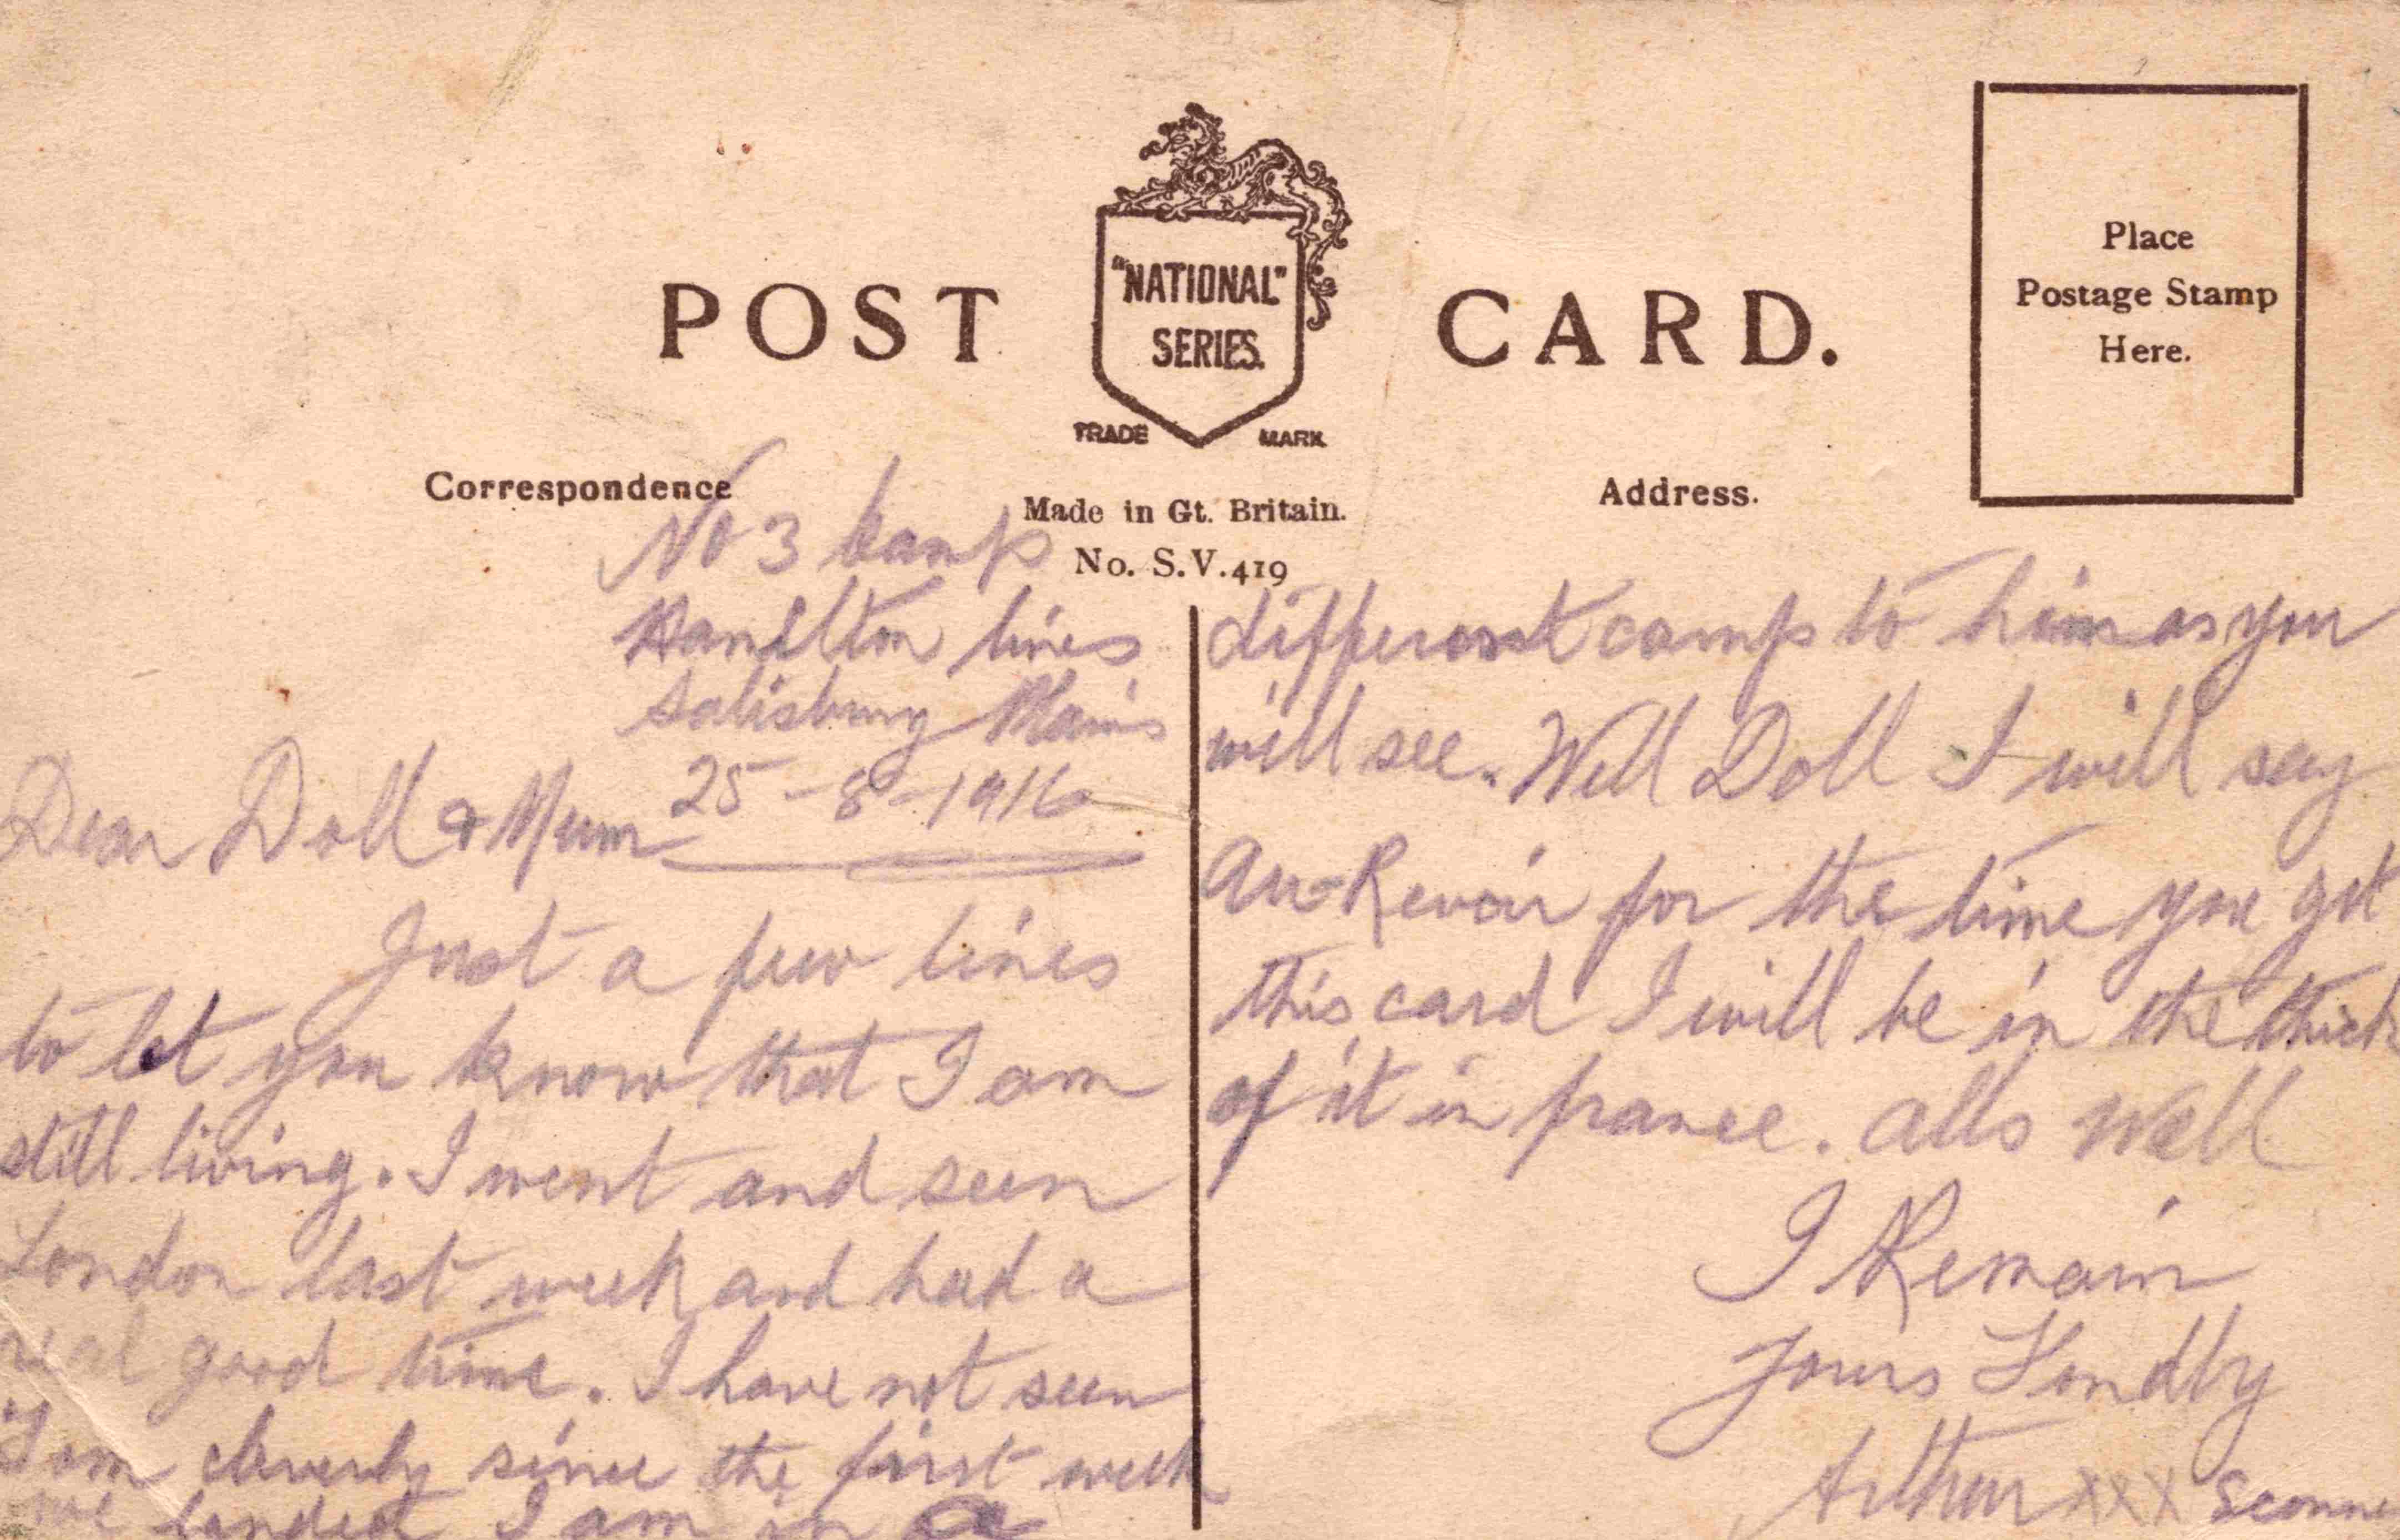 POST CARD.
"NATIONAL"
SERIES.
TRADE MARK
Place
Postage Stamp
Here.
Correspondence
Made in Gt. Britain.
No. S.V.419
Address.
No 3 Camp
Hamilton lines
Salisbury Plains
25-8-1916
Dear Doll & Mum
Just a few lines
to let you know that I am
still living. I went and seen
London last week and had a
real good time. I have not seen
Tom cleverly since the first week
we landed I am in a
different camp to him as you
will see. Well Doll I will say
Au-Revoir for the time you get
this card I will be in the thick
of it in france. alls Well
I Remain
Yours Fondly
Arthur xxx